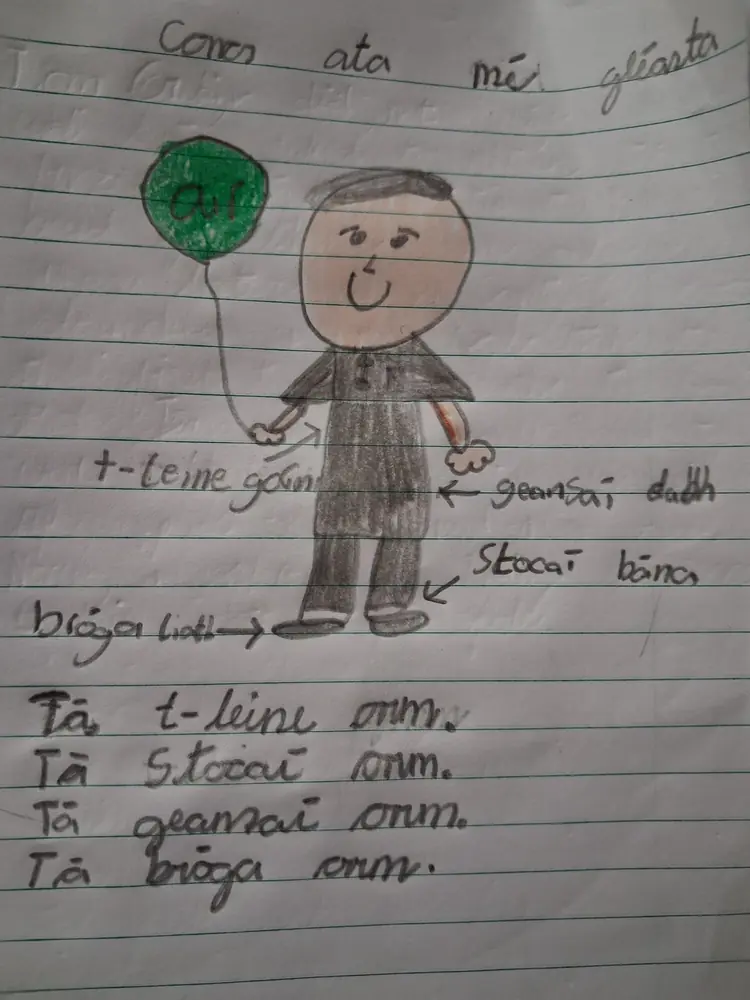 Conas ata mé gléasta
air
t-leine gorm
geansaí dubh
Stocaī bāna
brōga liath
Tā t-leine orm.
Tā Stocaī orm.
Tā geansaī orm.
Tā brōga orm.